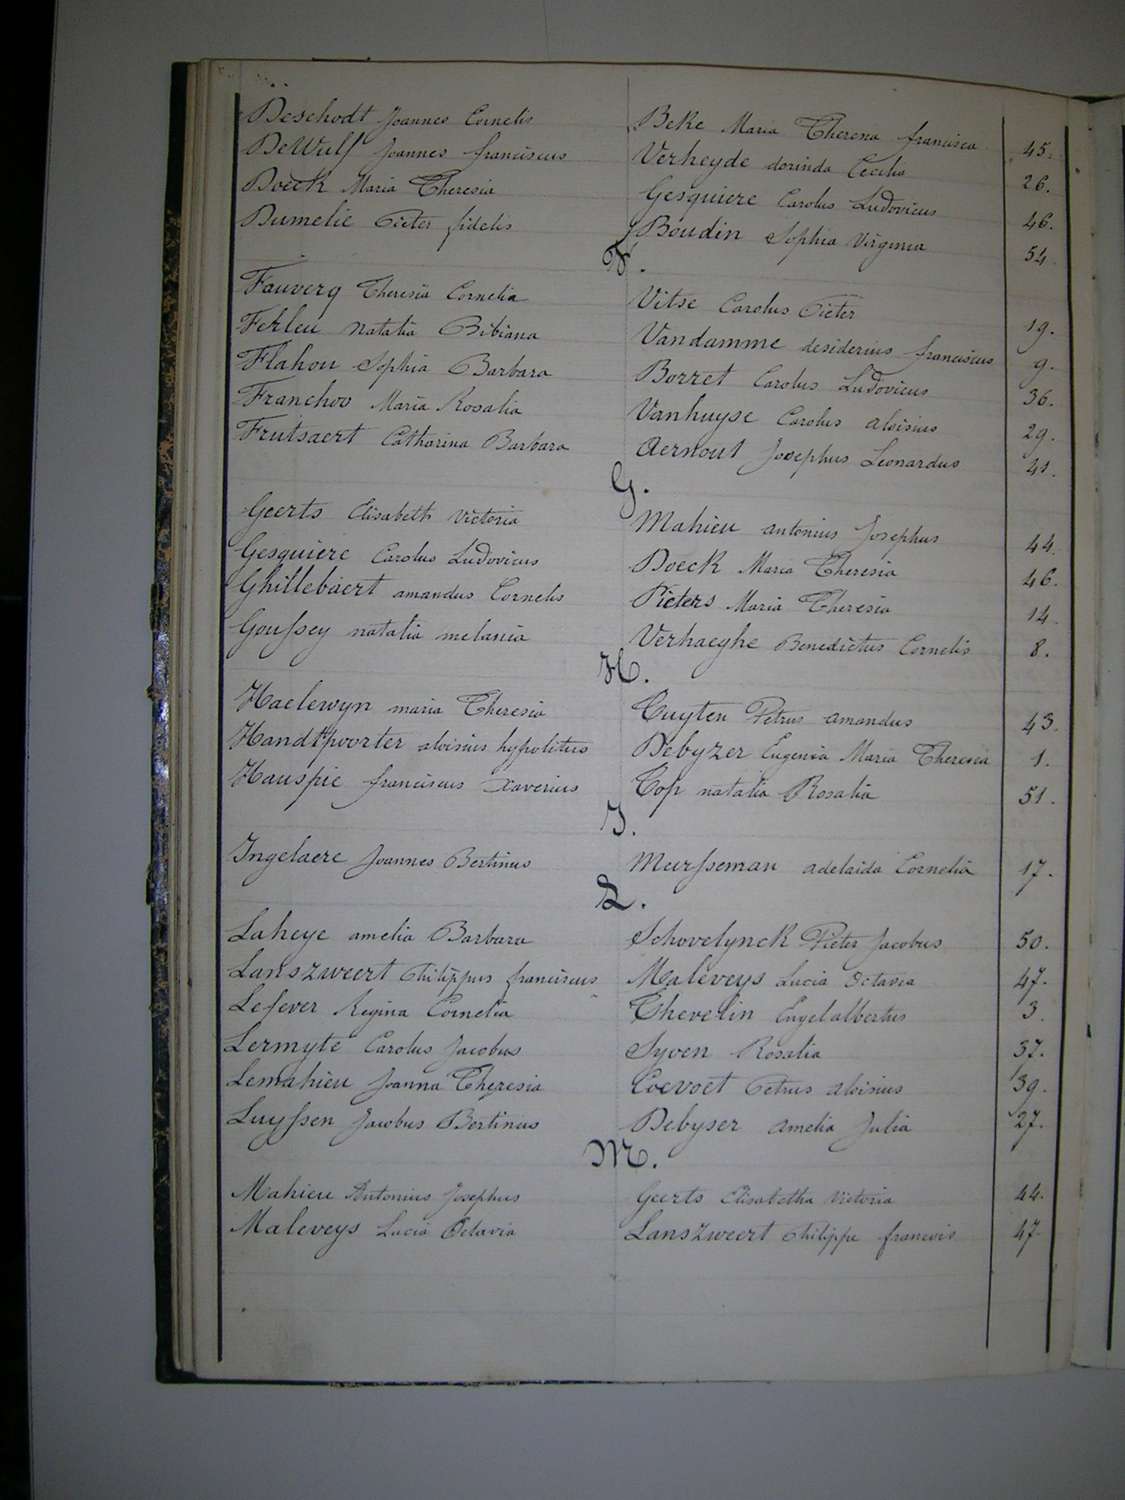 Deschodt Joannes Cornelis Beke Maria Theresia francisca 45.
DeWulf Joannes franciscus Verheyde dorinda Cecilia 26.
Doeck Maria Theresia Gesquiere Carolus Ludovicus 46.
Dumelie Pieter fidelis Boudin Sophia Virginia 54.
F.
Fauverq Theresia Cornelia Vitse Carolus Pieter 19.
Ferleu natalia Bibiana Vandamme desiderius franciscus 9.
Flahou Sophia Barbara Borret Carolus Ludovicus 36.
Franchoo Maria Rosalia Vanhuyse Carolus aloisius 29.
Frutsaert Catharina Barbara Aernout Josephus Leonardus 41.
G.
Geerts Elisabeth Victoria Mahieu antonius Josephus 44.
Gesquiere Carolus Ludovicus Doeck Maria Theresia 46.
Ghillebaert amandus Cornelis Pieters Maria Theresia 14.
Goussey natalia melania Verhaeghe Benedictus Cornelis 8.
H.
Haelewyn maria Theresia Cuyten Petrus amandus 43.
Handtpoorter aloisius hypolitus Debyzer Eugenia Maria Theresia 1.
Hauspie franciscus Xaverius Top natalia Rosalia 51.
I.
Ingelaere Joannes Bertinus Meursseman adelaida Cornelia 17.
L.
Laheye amelia Barbara Schovelynck Pieter Jacobus 50.
Lanszweert Philippus franciscus Maleveys Lucia Octavia 47.
Lefever Regina Cornelia Thevelin Engelalbertus 3.
Lermyte Carolus Jacobus Syoen Rosalia 37.
Lemahieu Joanna Theresia Coevoet Petrus aloisius 39.
Luyssen Jacobus Bertinus Debyser amelia Julia 27.
M.
Mahieu Antonius Josephus Geerts Elisabetha Victoria 44.
Maleveys Lucia Octavia Lanszweert Philippe francois 47.